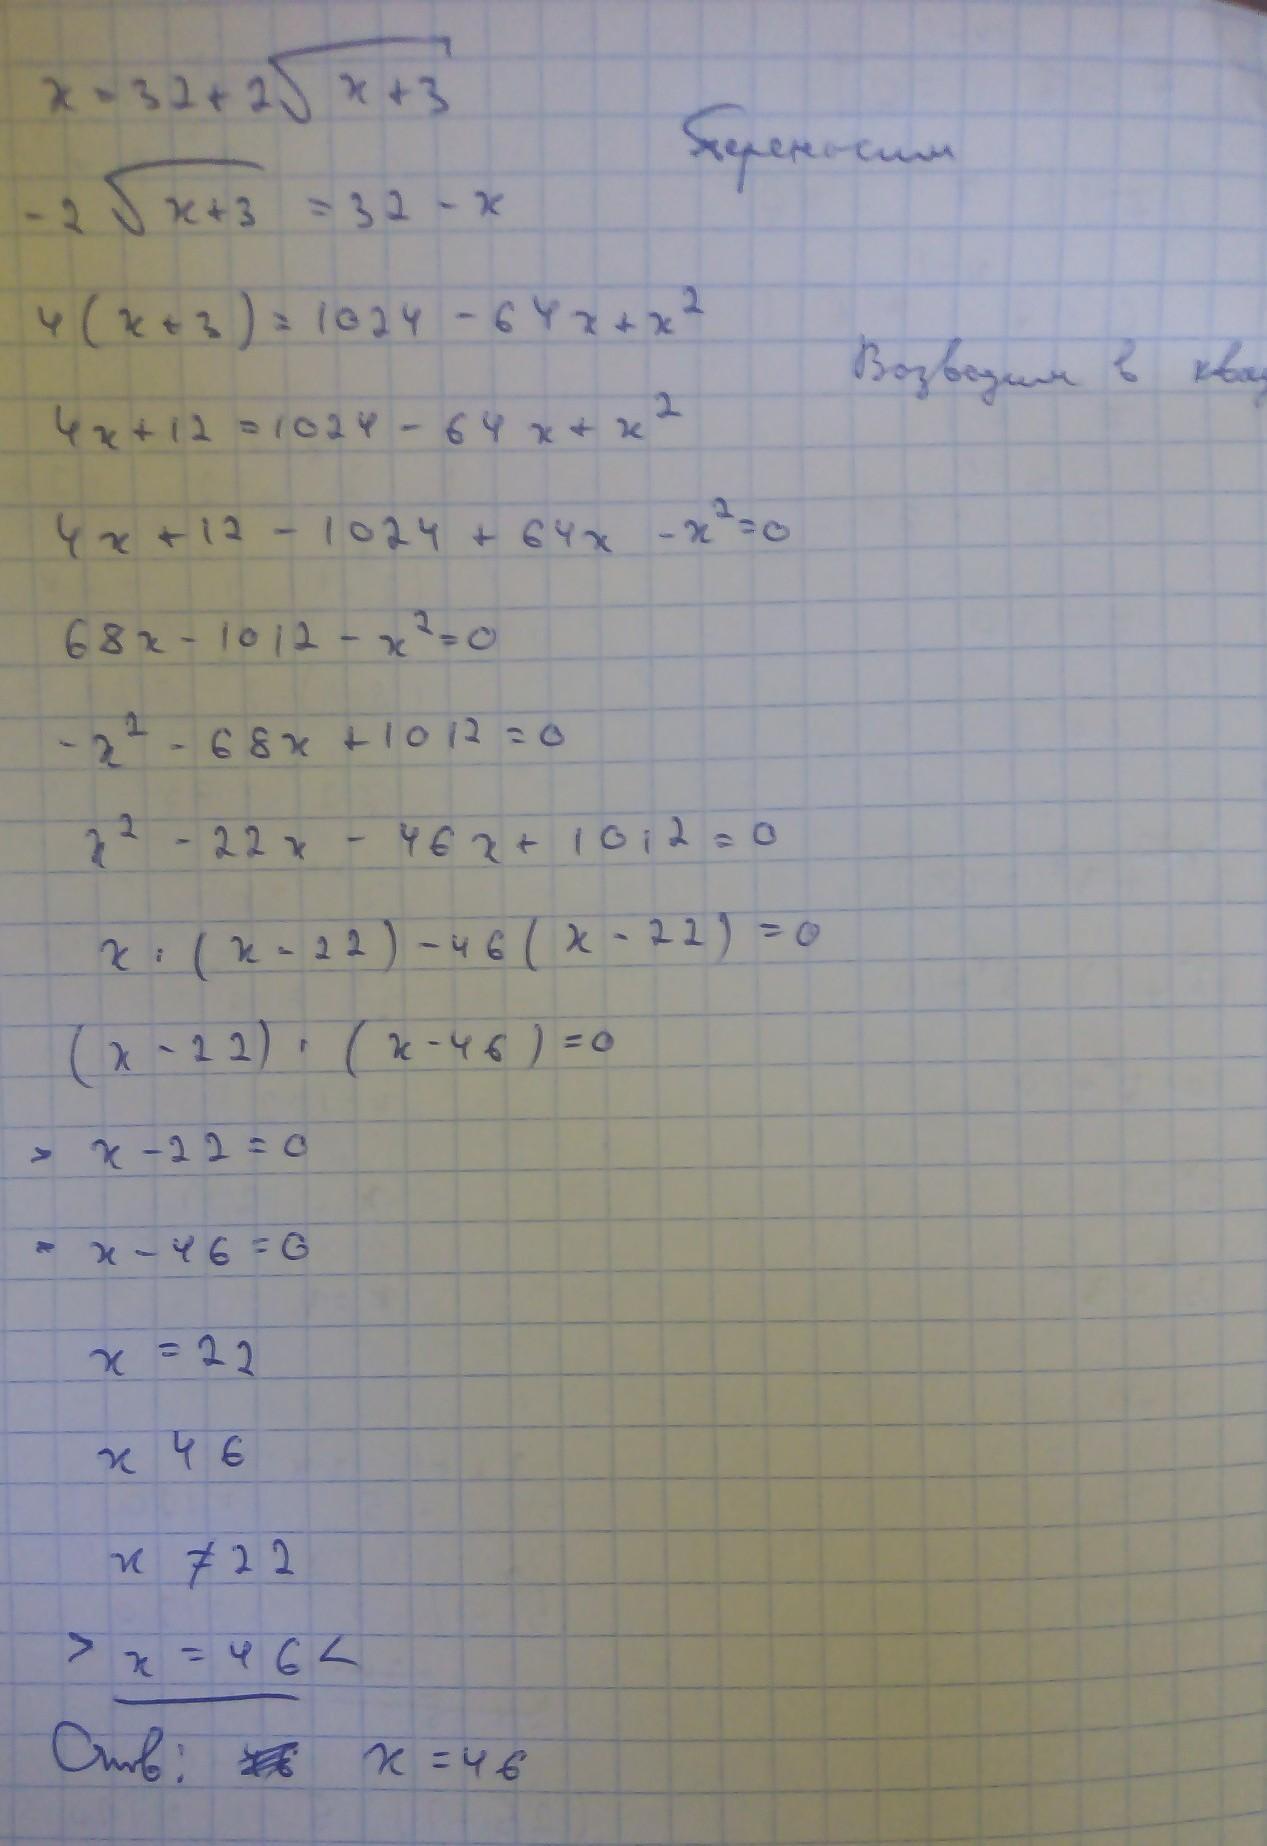 x = 32 + 2√x+3
переносим
-2√x+3 = 32 - x
4(x+3) = 1024 - 64x + x²
Возводим в квад
4x + 12 = 1024 - 64x + x²
4x + 12 - 1024 + 64x - x² = 0
68x - 1012 - x² = 0
-x² - 68x + 1012 = 0
x² - 22x - 46x + 1012 = 0
x · (x - 22) - 46(x - 22) = 0
(x - 22) · (x - 46) = 0
> x - 22 = 0
- x - 46 = 0
x = 22
x 46
x ≠ 22
> x = 46 <
Отв: x = 46